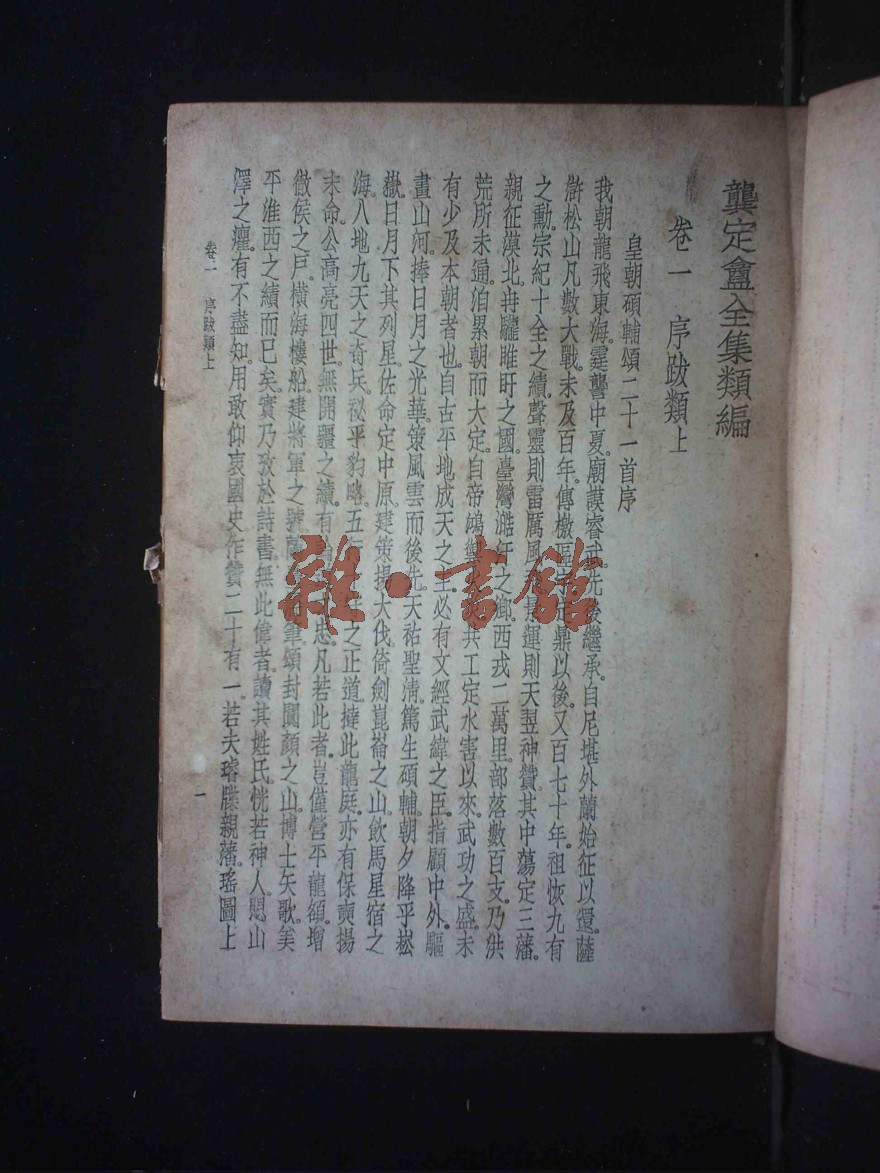 龔定盦全集類編
卷一 序跋類上
皇朝碩輔頌二十一首序
我朝龍飛東海。霆讋中夏。廟謨睿武。先後繼承。自尼堪外蘭始征以還。薩
滸松山凡數大戰。未及百年。傳檄區定鼎以後。又百七十年。祖恢九有
之勳。宗紀十全之績。聲靈則雷厲風運則天翌神贊。其中蕩定三藩。
親征漠北。冉駹睢盱之國。臺灣澔汗之鄉。西戎二萬里。部落數百支。乃洪
荒所未通。洎累朝而大定。自帝鴻共工定水害以來。武功之盛。未
有少及本朝者也。自古平地成天之主。必有文經武緯之臣。指顧中外。驅
畫山河。捧日月之光華。策風雲而後先。天祐聖清。篤生碩輔。朝夕降乎崧
嶽。日月下其列星。佐命定中原。建策揚大伐。倚劍崑崙之山。飲馬星宿之
海。八地九天之奇兵。祕乎豹略。五之正道。撻此龍庭。亦有保奭揚
末命。公高亮四世。無開疆之績。有忠。凡若此者。豈僅營平龍頟。增
徹侯之戶。橫海樓船。建將軍之號。筆。頌封闐顏之山。博士矢歌。美
平淮西之績而已矣。實乃攷於詩書。無此偉者。讀其姓氏。恍若神人。愳山
澤之癯。有不盡知。用敢仰衷國史。作贊二十有一。若夫璿牒親藩。瑤圖上
卷一 序跋類上
一
雜·書館